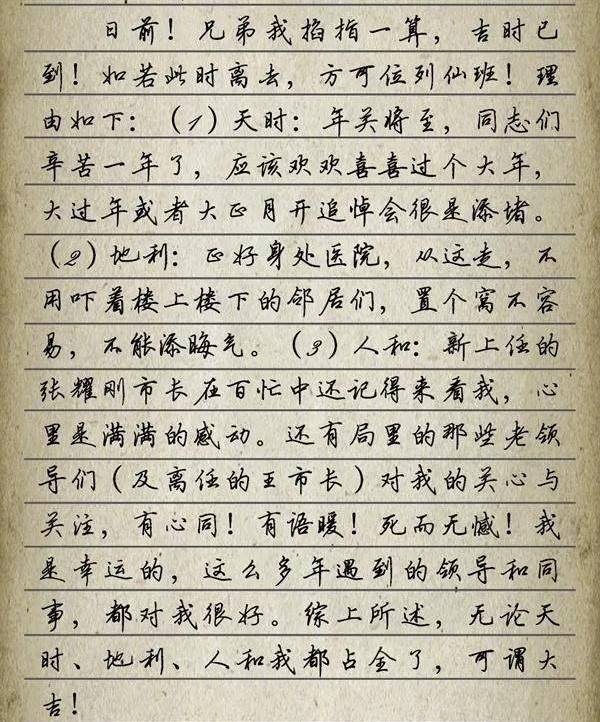 日前！兄弟我掐指一算，吉时已
到！如若此时离去，方可位列仙班！理
由如下：（1）天时：年关将至，同志们
辛苦一年了，应该欢欢喜喜过个大年，
大过年或者大正月开追悼会很是添堵。
（2）地利：正好身处医院，从这走，不
用吓着楼上楼下的邻居们，置个窝不容
易，不能添晦气。（3）人和：新上任的
张耀刚市长在百忙中还记得来看我，心
里是满满的感动。还有局里的那些老领
导们（及离任的王市长）对我的关心与
关注，有心同！有语暖！死而无憾！我
是幸运的，这么多年遇到的领导和同
事，都对我很好。综上所述，无论天
时、地利、人和我都占全了，可谓大
吉！